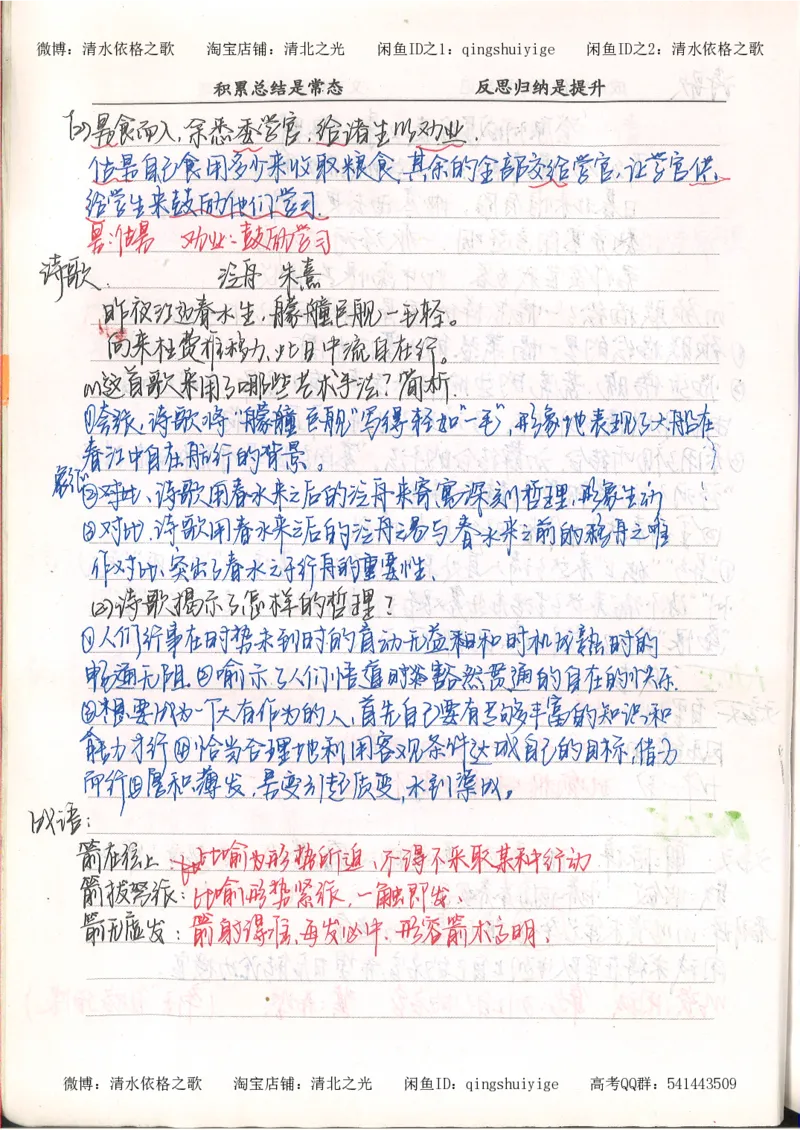 微博：清水依格之歌 淘宝店铺：清北之光 闲鱼ID之1：qingshuiyige 闲鱼ID之2：清水依格之歌
积累总结是常态 反思归纳是提升
(2)量食而入，余悉委学官，给诸生以劝业.
估量自己食用多少来收取粮食，其余的全部交给学官，让学官供
给学生来鼓励他们学习.
量：估量 劝业：鼓励学习
诗歌. 泛舟 朱熹
昨夜江边春水生，艨艟巨舰一毛轻。
向来枉费推移力，此日中流自在行。
(1)这首歌采用了哪些艺术手法？简析.
①夸张，诗歌将“艨艟巨舰”写得轻如“一毛”，形象地表现了大船在
春江中自在航行的背景。
象征②对比、诗歌用春水来之后的泛舟来寄寓深刻哲理，形象生动
③对比，诗歌用春水来之后的泛舟之易与春水来之前的移舟之难
作对比，突出了春水之于行舟的重要性.
(2)诗歌揭示了怎样的哲理？
①人们行事在时势未到时的盲动无益和和时机成熟时的
畅通无阻.②喻示了人们悟道时豁然贯通的自在的快乐.
③想要成为一个大有作为的人，首先自己要有足够丰富的知识和
能力才行④恰当合理地利用客观条件达成自己的目标，借力
而行⑤厚积薄发，量变引起质变，水到渠成。
成语：
箭在弦上：比喻为形势所迫、不得不采取某种行动
箭拔弩张：比喻形势紧张，一触即发.
箭无虚发：箭射得准，每发必中.形容箭术高明.
微博：清水依格之歌 淘宝店铺：清北之光 闲鱼ID：qingshuiyige 高考QQ群：541443509